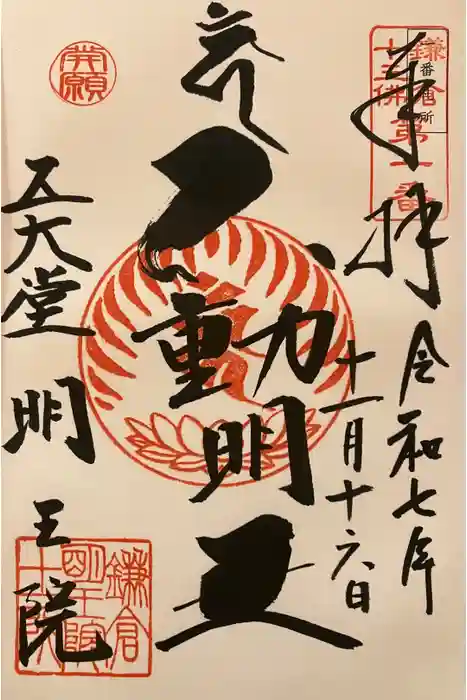 奉拝
令和七年
十一月十六日
鎌倉
十三佛第一番
番
所
不動明王
発願
五大堂
明王院
鎌倉
明王院